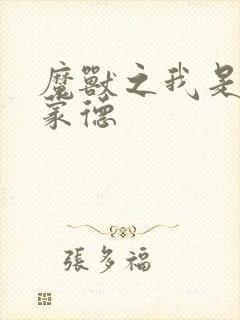 魔獸之我是
蒙德
張多福